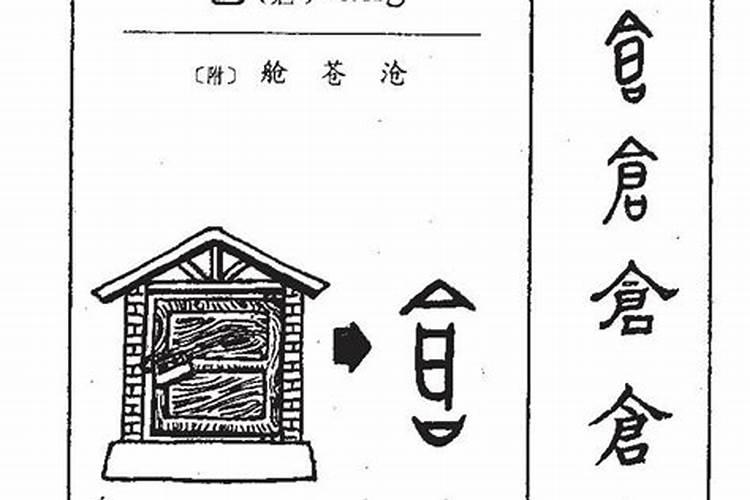 〔附〕 舱 苍 沧
倉
倉
倉
倉